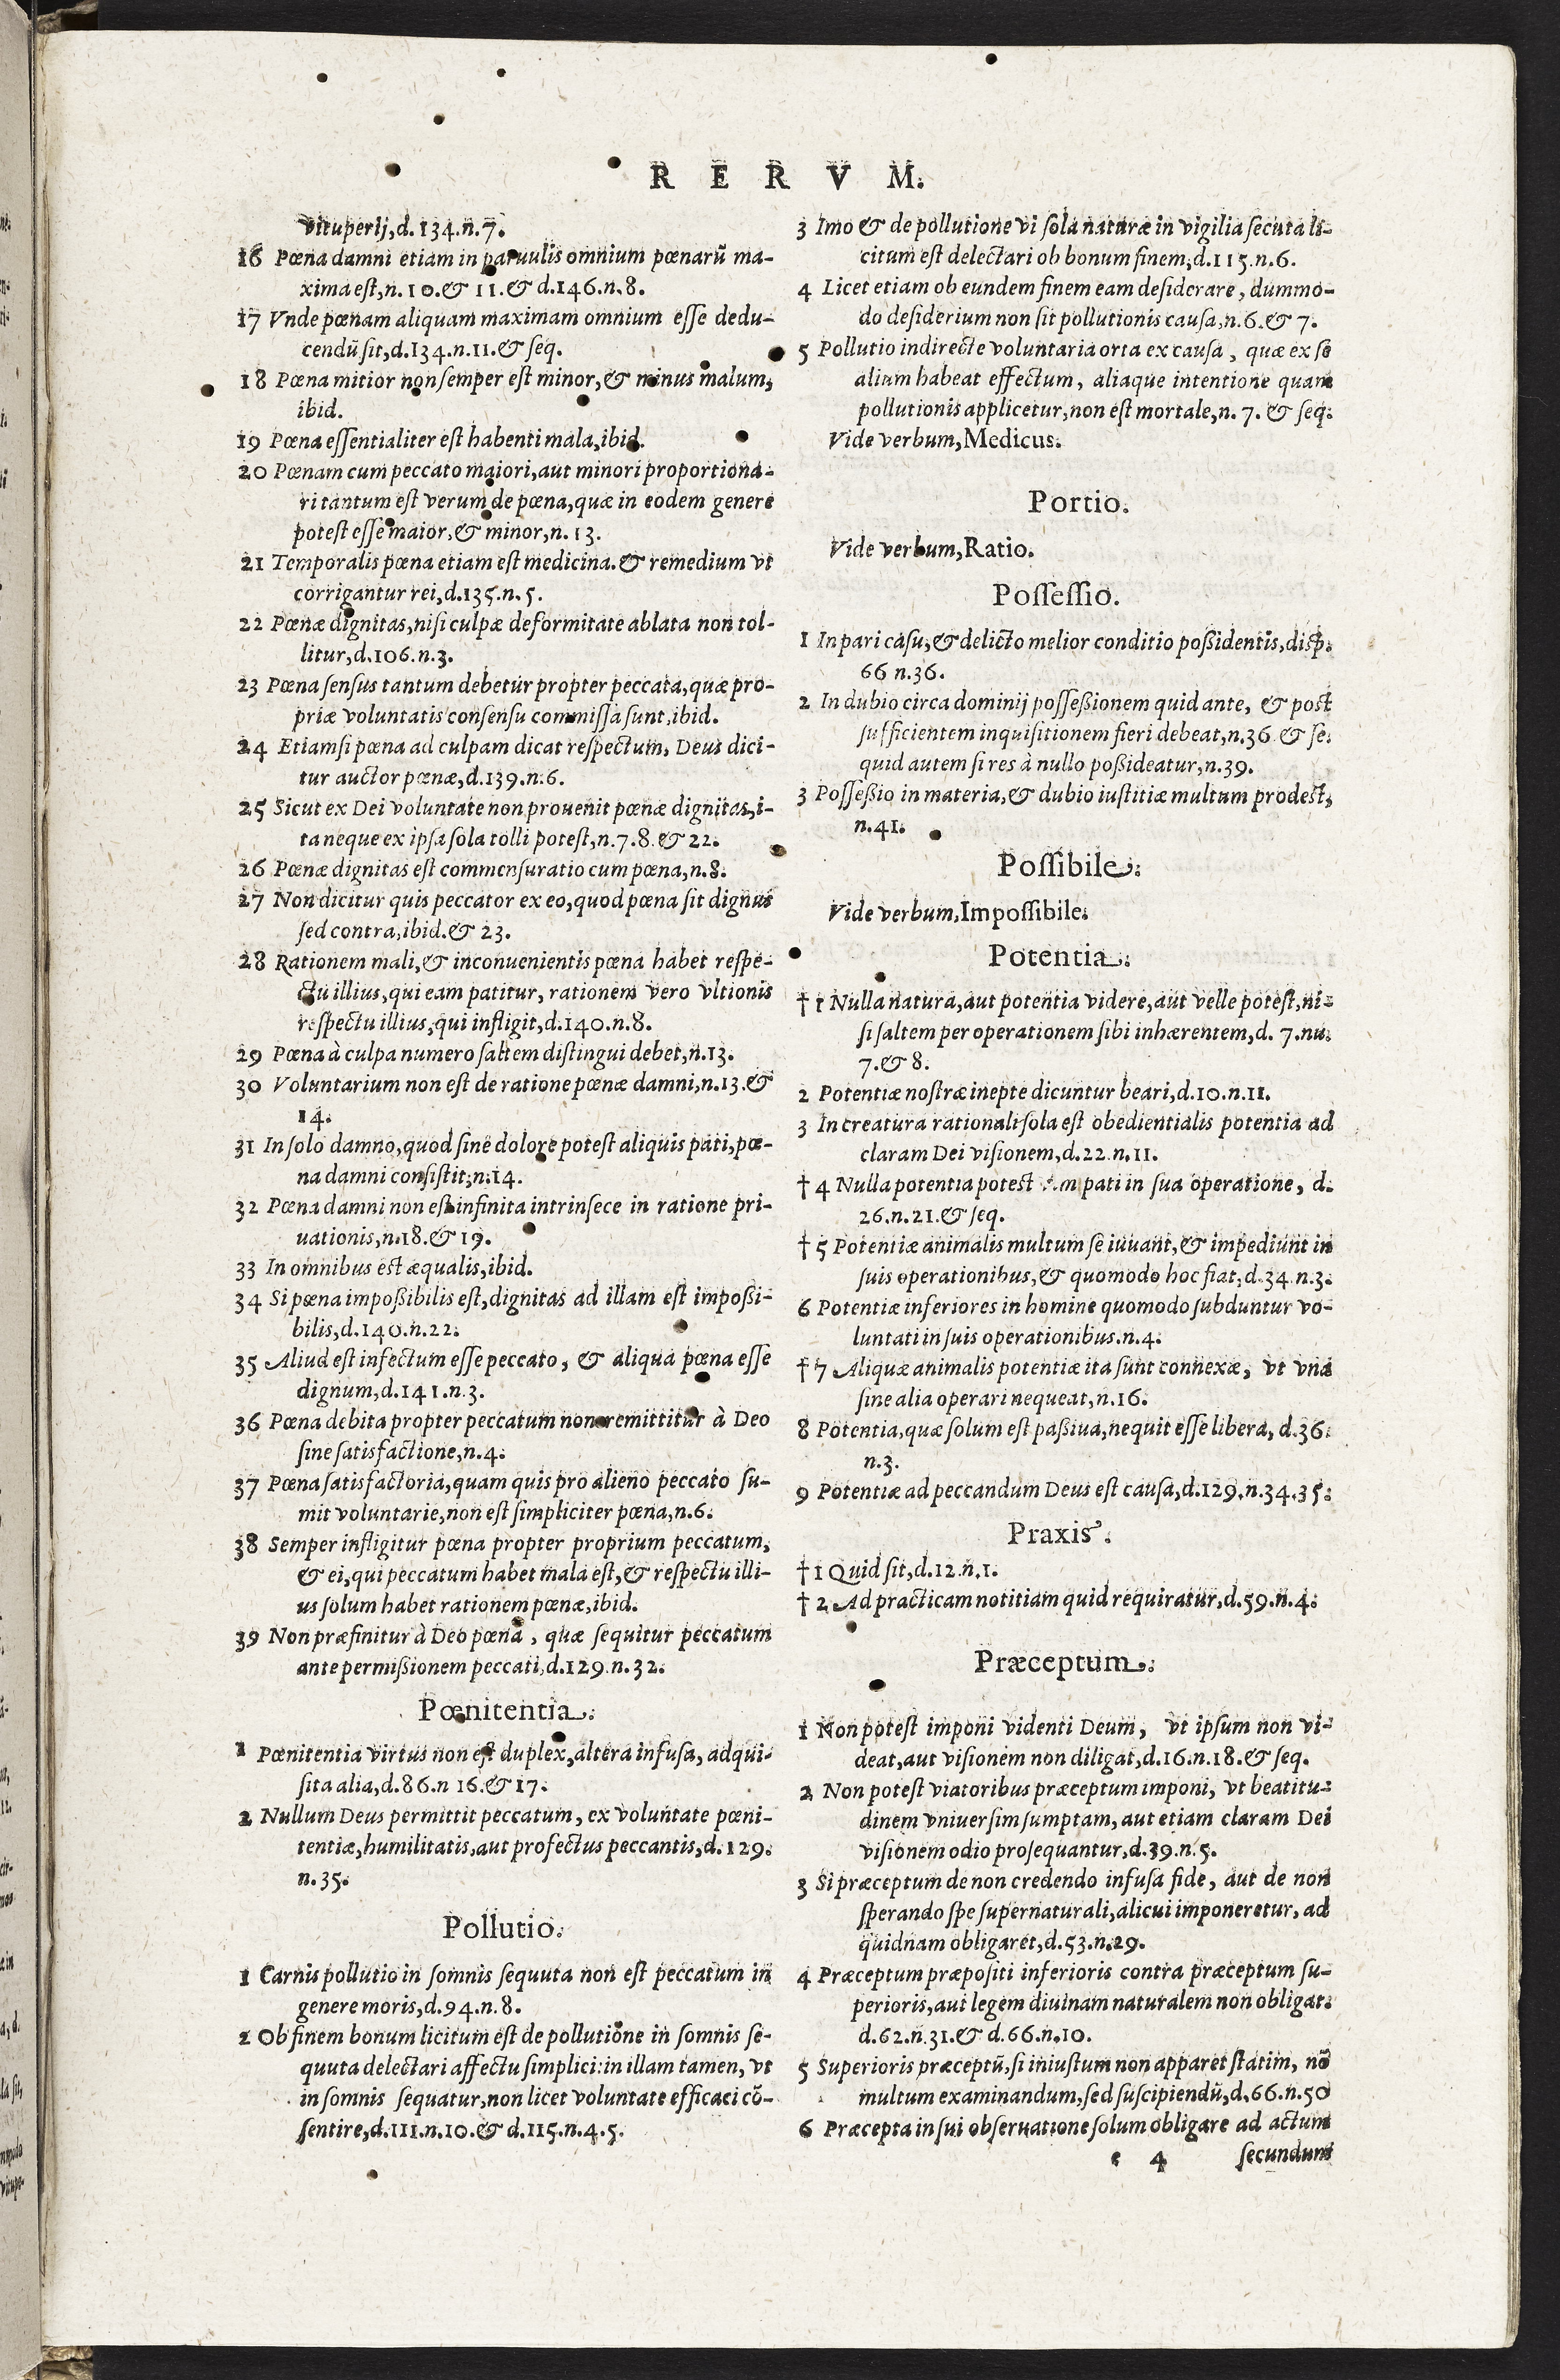 RERVM.
vituperij,d.134.n.7.
16 Pœna damni etiam in paruulis omnium pœnarũ ma-
xima est,n.10.& 11.& d.146.n.8.
17 Vnde pœnam aliquam maximam omnium esse dedu-
cendũ sit,d.134.n.11.& seq.
18 Pœna mitior non semper est minor,& minus malum,
ibid.
19 Pœna essentialiter est habenti mala,ibid.
20 Pœnam cum peccato maiori,aut minori proportiona-
ri tantum est verum de pœna,quæ in eodem genere
potest esse maior,& minor,n.13.
21 Temporalis pœna etiam est medicina.& remedium vt
corrigantur rei,d.135.n.5.
22 Pœnæ dignitas,nisi culpæ deformitate ablata non tol-
litur,d.106.n.3.
23 Pœna sensus tantum debetur propter peccata,quæ pro-
priæ voluntatis consensu commissa sunt,ibid.
24 Etiamsi pœna ad culpam dicat respectum, Deus dici-
tur auctor pœnæ,d.139.n.6.
25 Sicut ex Dei voluntate non prouenit pœnæ dignitas,i-
ta neque ex ipsa sola tolli potest,n.7.8.& 22.
26 Pœnæ dignitas est commensuratio cum pœna,n.8.
27 Non dicitur quis peccator ex eo,quod pœna sit dignus
sed contra,ibid.& 23.
28 Rationem mali,& inconuenientis pœna habet respe-
ctu illius,qui eam patitur, rationem vero vltionis
respectu illius,qui infligit,d.140.n.8.
29 Pœna à culpa numero saltem distingui debet,n.13.
30 Voluntarium non est de ratione pœnæ damni,n.13.&
14.
31 In solo damno,quod sine dolore potest aliquis pati,pœ-
na damni consistit,n.14.
32 Pœna damni non est infinita intrinsece in ratione pri-
uationis,n.18.& 19.
33 In omnibus est æqualis,ibid.
34 Si pœna impoßibilis est,dignitas ad illam est impoßi-
bilis,d.140.n.22.
35 Aliud est infectum esse peccato, & aliqua pœna esse
dignum,d.141.n.3.
36 Pœna debita propter peccatum non remittitur à Deo
sine satisfactione,n.4.
37 Pœna satisfactoria,quam quis pro alieno peccato su-
mit voluntarie,non est simpliciter pœna,n.6.
38 Semper infligitur pœna propter proprium peccatum,
& ei,qui peccatum habet mala est,& respectu illi-
us solum habet rationem pœnæ,ibid.
39 Non præfinitur à Deo pœna, quæ sequitur peccatum
ante permißionem peccati,d.129.n.32.
Pœnitentia.
1 Pœnitentia virtus non est duplex,altera infusa, adqui-
sita alia,d.86.n 16.& 17.
2 Nullum Deus permittit peccatum, ex voluntate pœni-
tentiæ,humilitatis,aut profectus peccantis,d.129.
n.35.
Pollutio.
1 Carnis pollutio in somnis sequuta non est peccatum in
genere moris,d.94.n.8.
2 Ob finem bonum licitum est de pollutione in somnis se-
quuta delectari affectu simplici:in illam tamen, vt
in somnis sequatur,non licet voluntate efficaci cõ-
sentire,d.111.n.10.& d.115.n.4.5.
3 Imo & de pollutione vi sola naturæ in vigilia secuta li-
citum est delectari ob bonum finem,d.115.n.6.
4 Licet etiam ob eundem finem eam desiderare, dummo-
do desiderium non sit pollutionis causa,n.6.& 7.
5 Pollutio indirecte voluntaria orta ex causa, quæ ex se
alium habeat effectum, aliaque intentione quam
pollutionis applicetur,non est mortale,n.7. & seq.
Vide verbum,Medicus.
Portio.
Vide verbum,Ratio.
Possessio.
1 In pari casu,& delicto melior conditio poßidentis,disp.
66 n.36.
2 In dubio circa dominij posseßionem quid ante, & post
sufficientem inquisitionem fieri debeat,n.36 & se.
quid autem si res à nullo poßideatur,n.39.
3 Posseßio in materia,& dubio iustitiæ multum prodest,
n.41.
Possibile.
Vide verbum,Impossibile.
Potentia.
†1 Nulla natura,aut potentia videre,aut velle potest,ni-
si saltem per operationem sibi inhærentem,d. 7.nu.
7.& 8.
2 Potentiæ nostræ inepte dicuntur beari,d.10.n.11.
3 In creatura rationali sola est obedientialis potentia ad
claram Dei visionem,d.22.n.11.
†4 Nulla potentia potest pati in sua operatione, d.
26.n.21.& seq.
†5 Potentiæ animalis multum se iuuant,& impediunt in
suis operationibus,& quomodo hoc fiat,d.34.n.3.
6 Potentiæ inferiores in homine quomodo subduntur vo-
luntati in suis operationibus.n.4.
†7 Aliquæ animalis potentiæ ita sunt connexæ, vt vna
sine alia operari nequeat,n.16.
8 Potentia,quæ solum est paßiua,nequit esse libera, d.36.
n.3.
9 Potentiæ ad peccandum Deus est causa,d.129.n.34.35.
Praxis.
†1 Quid sit,d.12.n.1.
†2 Ad practicam notitiam quid requiratur,d.59.n.4.
Præceptum.
1 Non potest imponi videnti Deum, vt ipsum non vi-
deat,aut visionem non diligat,d.16.n.18.& seq.
2 Non potest viatoribus præceptum imponi, vt beatitu-
dinem vniuersim sumptam, aut etiam claram Dei
visionem odio prosequantur,d.39.n.5.
3 Si præceptum de non credendo infusa fide, aut de non
sperando spe supernaturali,alicui imponeretur, ad
quidnam obligaret,d.53.n.29.
4 Præceptum præpositi inferioris contra præceptum su-
perioris,aut legem diuinam naturalem non obligat.
d.62.n.31.& d.66.n.10.
5 Superioris præceptũ,si iniustum non apparet statim, nõ
multum examinandum,sed suscipiendũ,d.66.n.50
6 Præcepta in sui obseruatione solum obligare ad actum
e 4 secundum